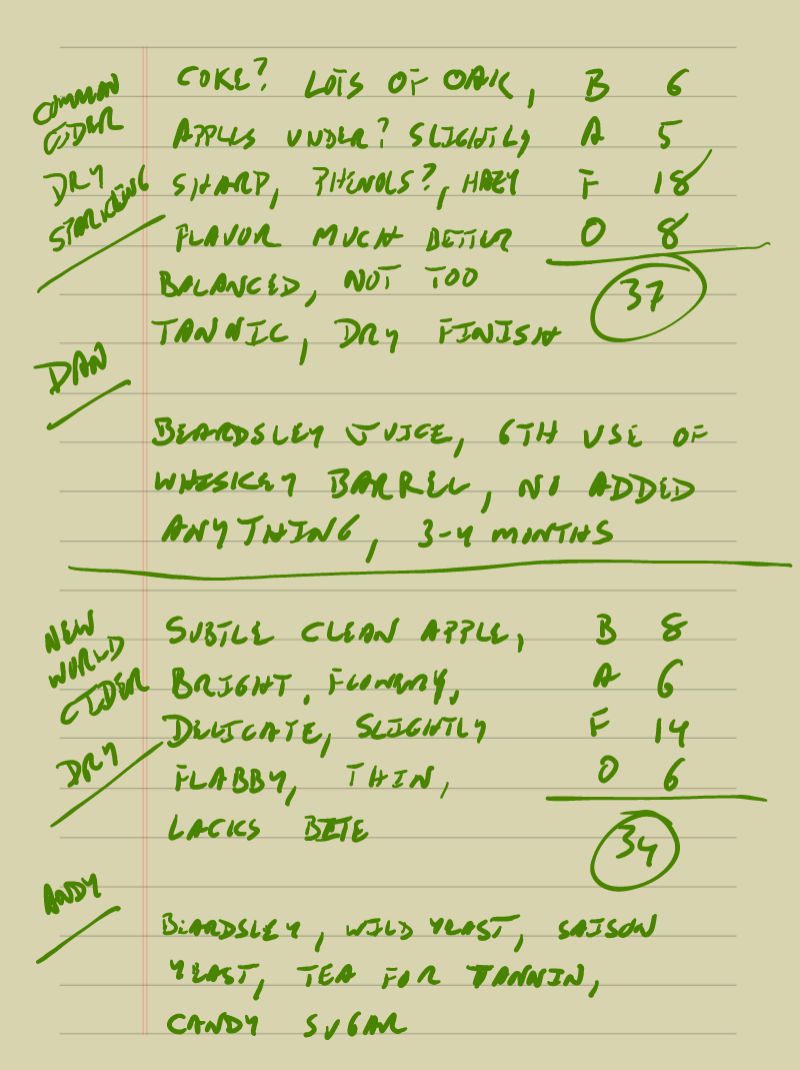 COMMON
CIDER
DRY
SPARKLING
COKE? LOTS OF OAK,
APPLES UNDER? SLIGHTLY
SHARP, PHENOLS?, HAZY
FLAVOR MUCH BETTER
BALANCED, NOT TOO
TANNIC, DRY FINISH
B 6
A 5
F 18
O 8
37
DAN
BEARDSLEY JUICE, 6TH USE OF
WHISKEY BARREL, NO ADDED
ANYTHING, 3-4 MONTHS
NEW
WORLD
CIDER
DRY
SUBTLE CLEAN APPLE,
BRIGHT, FLOWERY,
DELICATE, SLIGHTLY
FLABBY, THIN,
LACKS BITE
B 8
A 6
F 14
O 6
34
ANDY
BEARDSLEY, WILD YEAST, SAISON
YEAST, TEA FOR TANNIN,
CANDY SUGAR